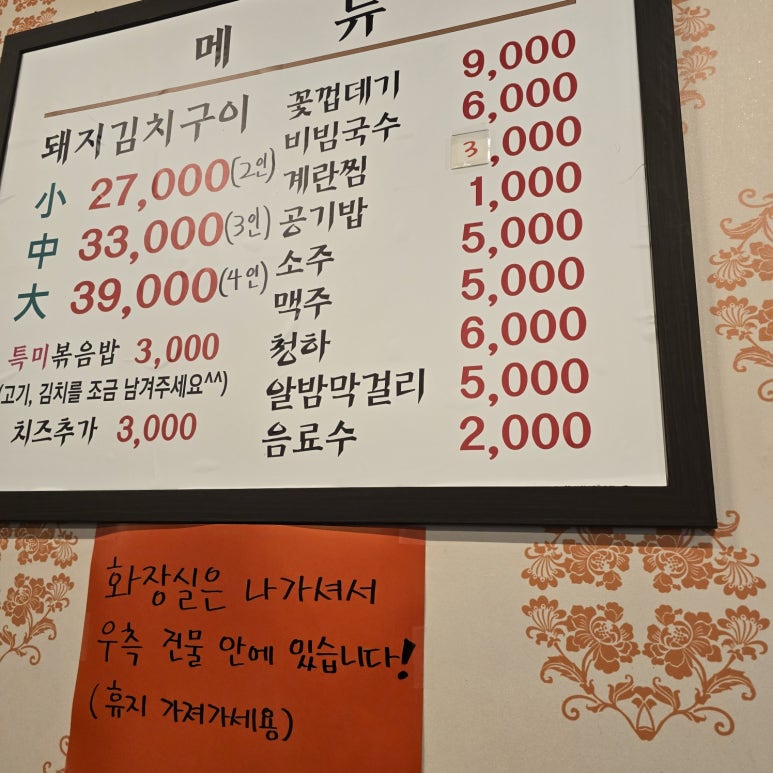 메 뉴
돼지김치구이
小 27,000(2인)
中 33,000(3인)
大 39,000(4인)
특미볶음밥 3,000
(고기, 김치를 조금 남겨주세요^^)
치즈추가 3,000
꽃껍데기 9,000
비빔국수 6,000
계란찜 3,000
공기밥 1,000
소주 5,000
맥주 5,000
청하 6,000
알밤막걸리 5,000
음료수 2,000
화장실은 나가셔서
우측 건물 안에 있습니다!
(휴지 가져가세용)